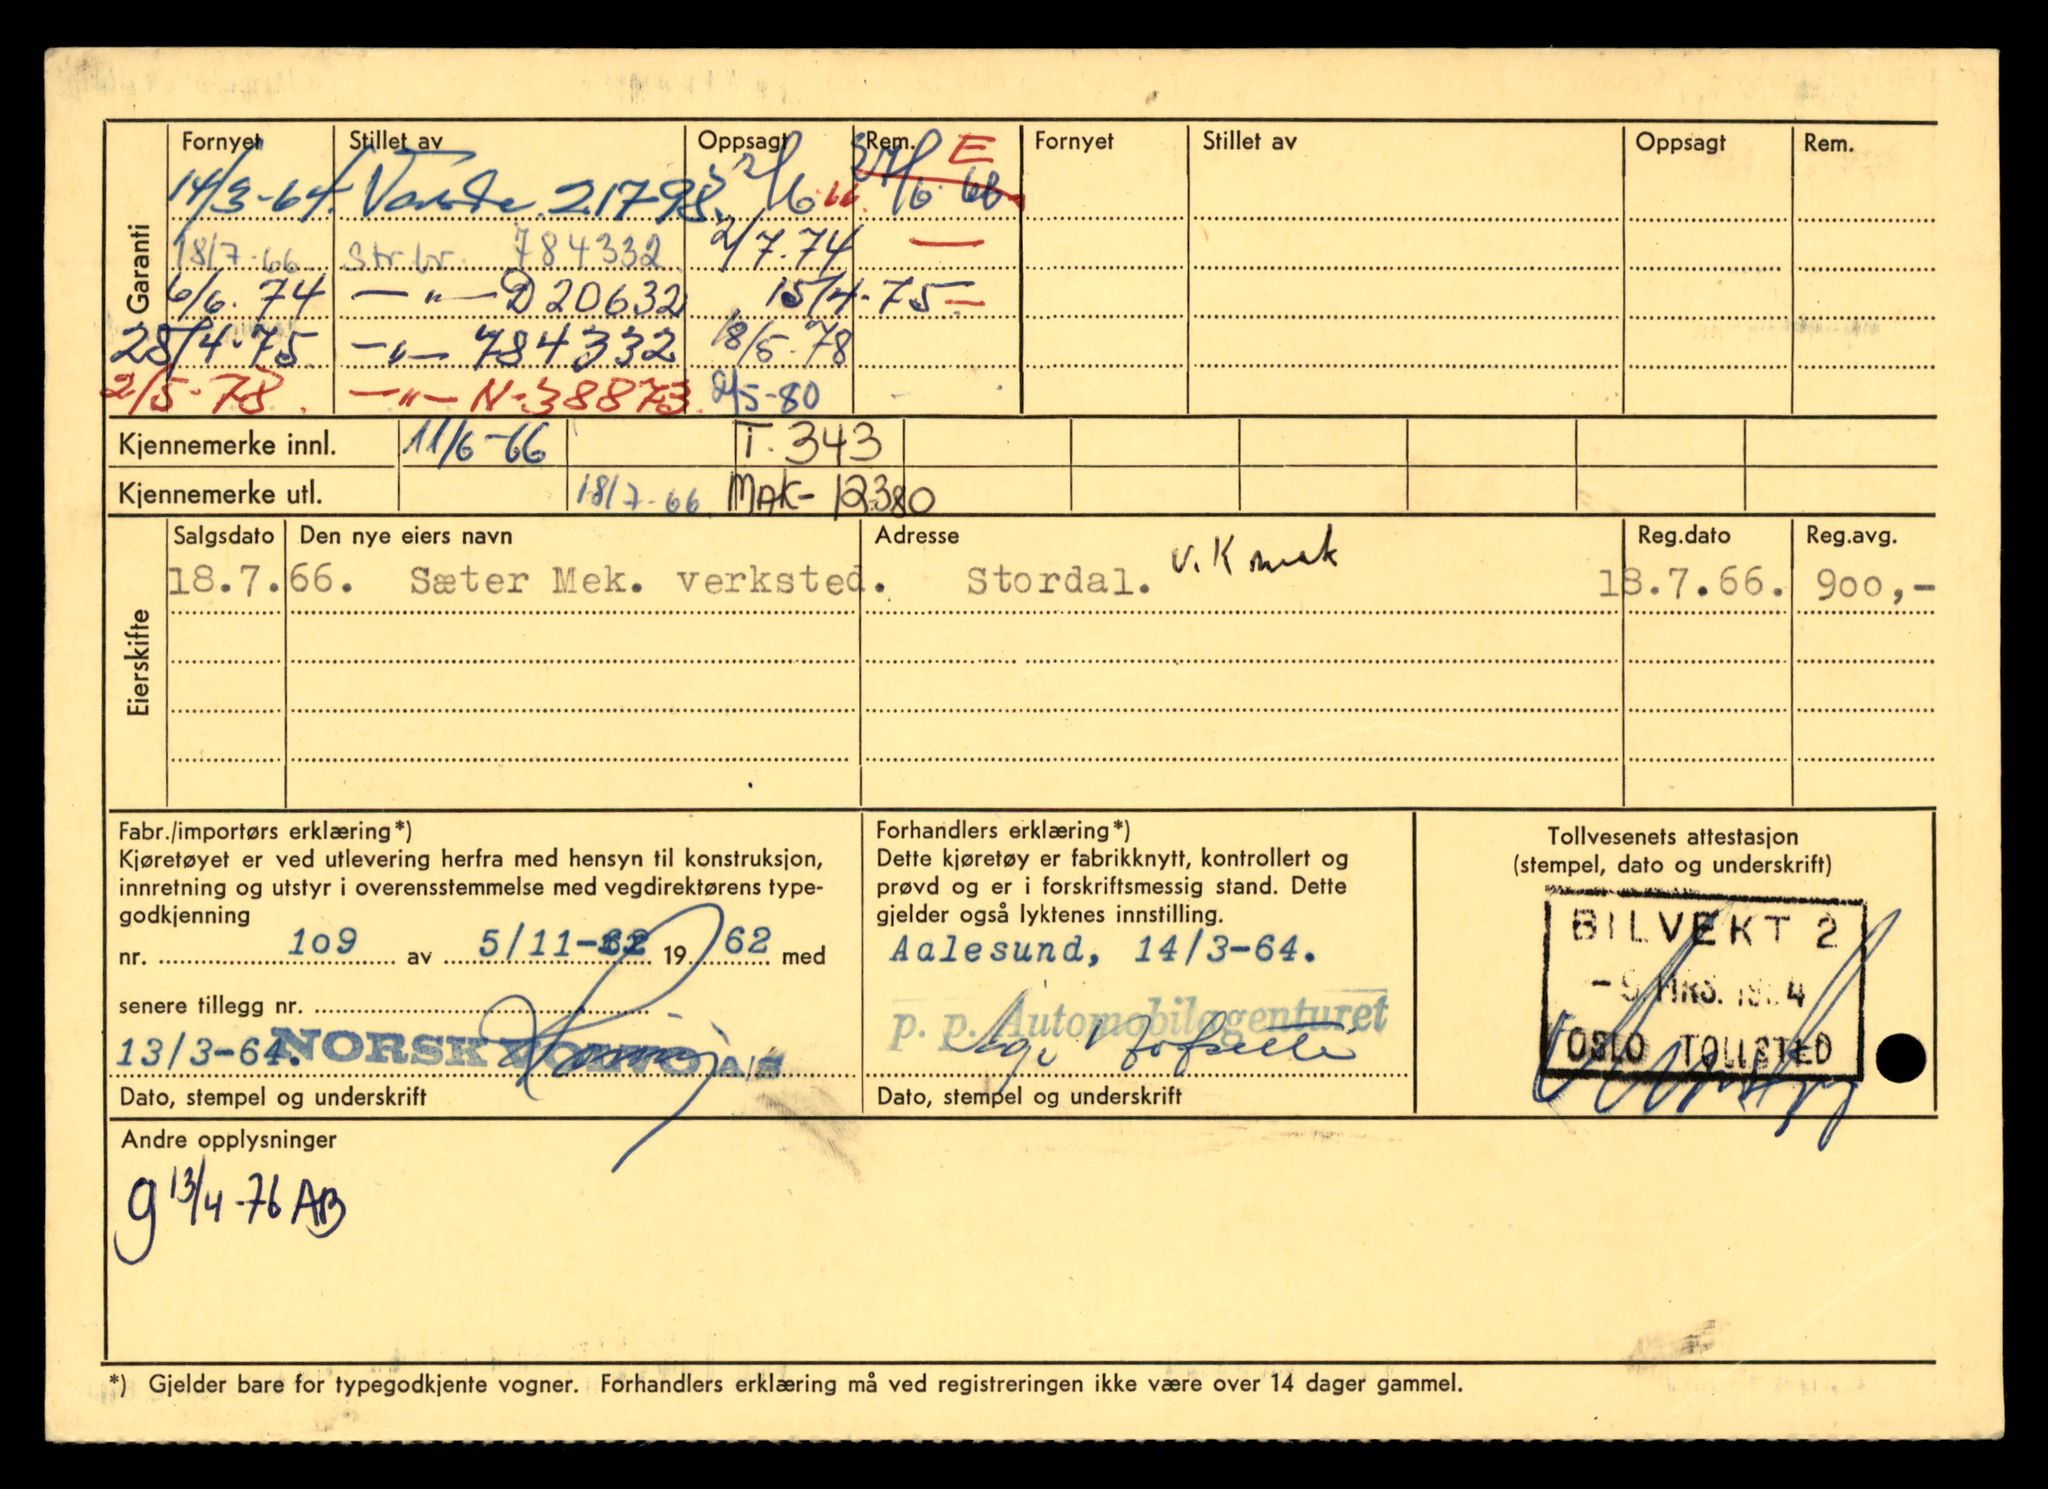 Fornyet Stillet av Oppsagt Rem. Fornyet Stillet av Oppsagt Rem.
E
14/3-64. 21798. 2/6.66 6.66
18/7-66 Str.br. 784332 2/7.74 —
6/6.74 —"— D20632 15/4-75 —
25/4-75. —"— 784332 18/5-78
2/5-78. —"— N-38873. 2/5-80
Garanti
Kjennemerke innl. 11/6-66 T.343
Kjennemerke utl. 18/7-66 MAK-12380
Eierskifte
Salgsdato Den nye eiers navn Adresse Reg.dato Reg.avg.
18.7.66. Sæter Mek. verksted. Stordal. 18.7.66. 900,-
Fabr./importørs erklæring*)
Kjøretøyet er ved utlevering herfra med hensyn til konstruksjon,
innretning og utstyr i overensstemmelse med vegdirektørens type-
godkjenning
nr. 109 av 5/11-62 19 62 med
senere tillegg nr.
13/3-64. NORSK VOLVO A/S
Dato, stempel og underskrift
Forhandlers erklæring*)
Dette kjøretøy er fabrikknytt, kontrollert og
prøvd og er i forskriftsmessig stand. Dette
gjelder også lyktenes innstilling.
Aalesund, 14/3-64.
p. p. Automobilagenturet
Dato, stempel og underskrift
Tollvesenets attestasjon
(stempel, dato og underskrift)
BILVEKT 2
-9. MRS. 1964
OSLO TOLLSTED
Andre opplysninger
g 13/4-76 AB
*) Gjelder bare for typegodkjente vogner. Forhandlers erklæring må ved registreringen ikke være over 14 dager gammel.